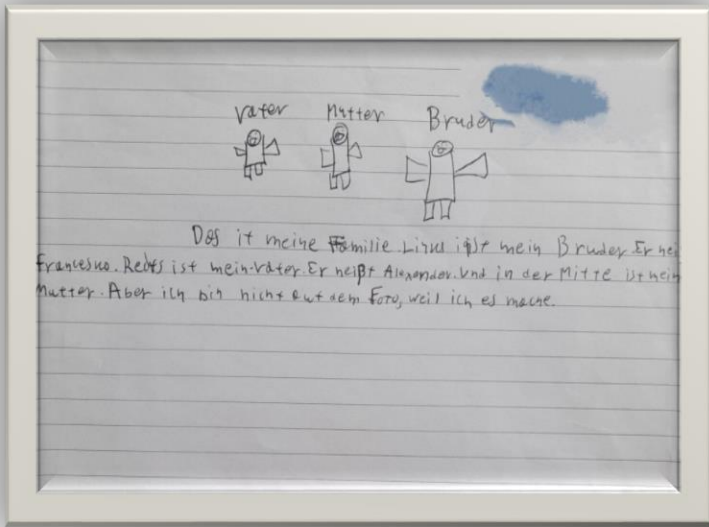 Vater Mutter Bruder
Das it meine Familie. Links ist mein Bruder. Er hei
francesko. Rechts ist mein Vater. Er heißt Alexander. Und in der Mitte ist mein
Mutter. Aber ich bin nicht auf dem Foto, weil ich es mache.